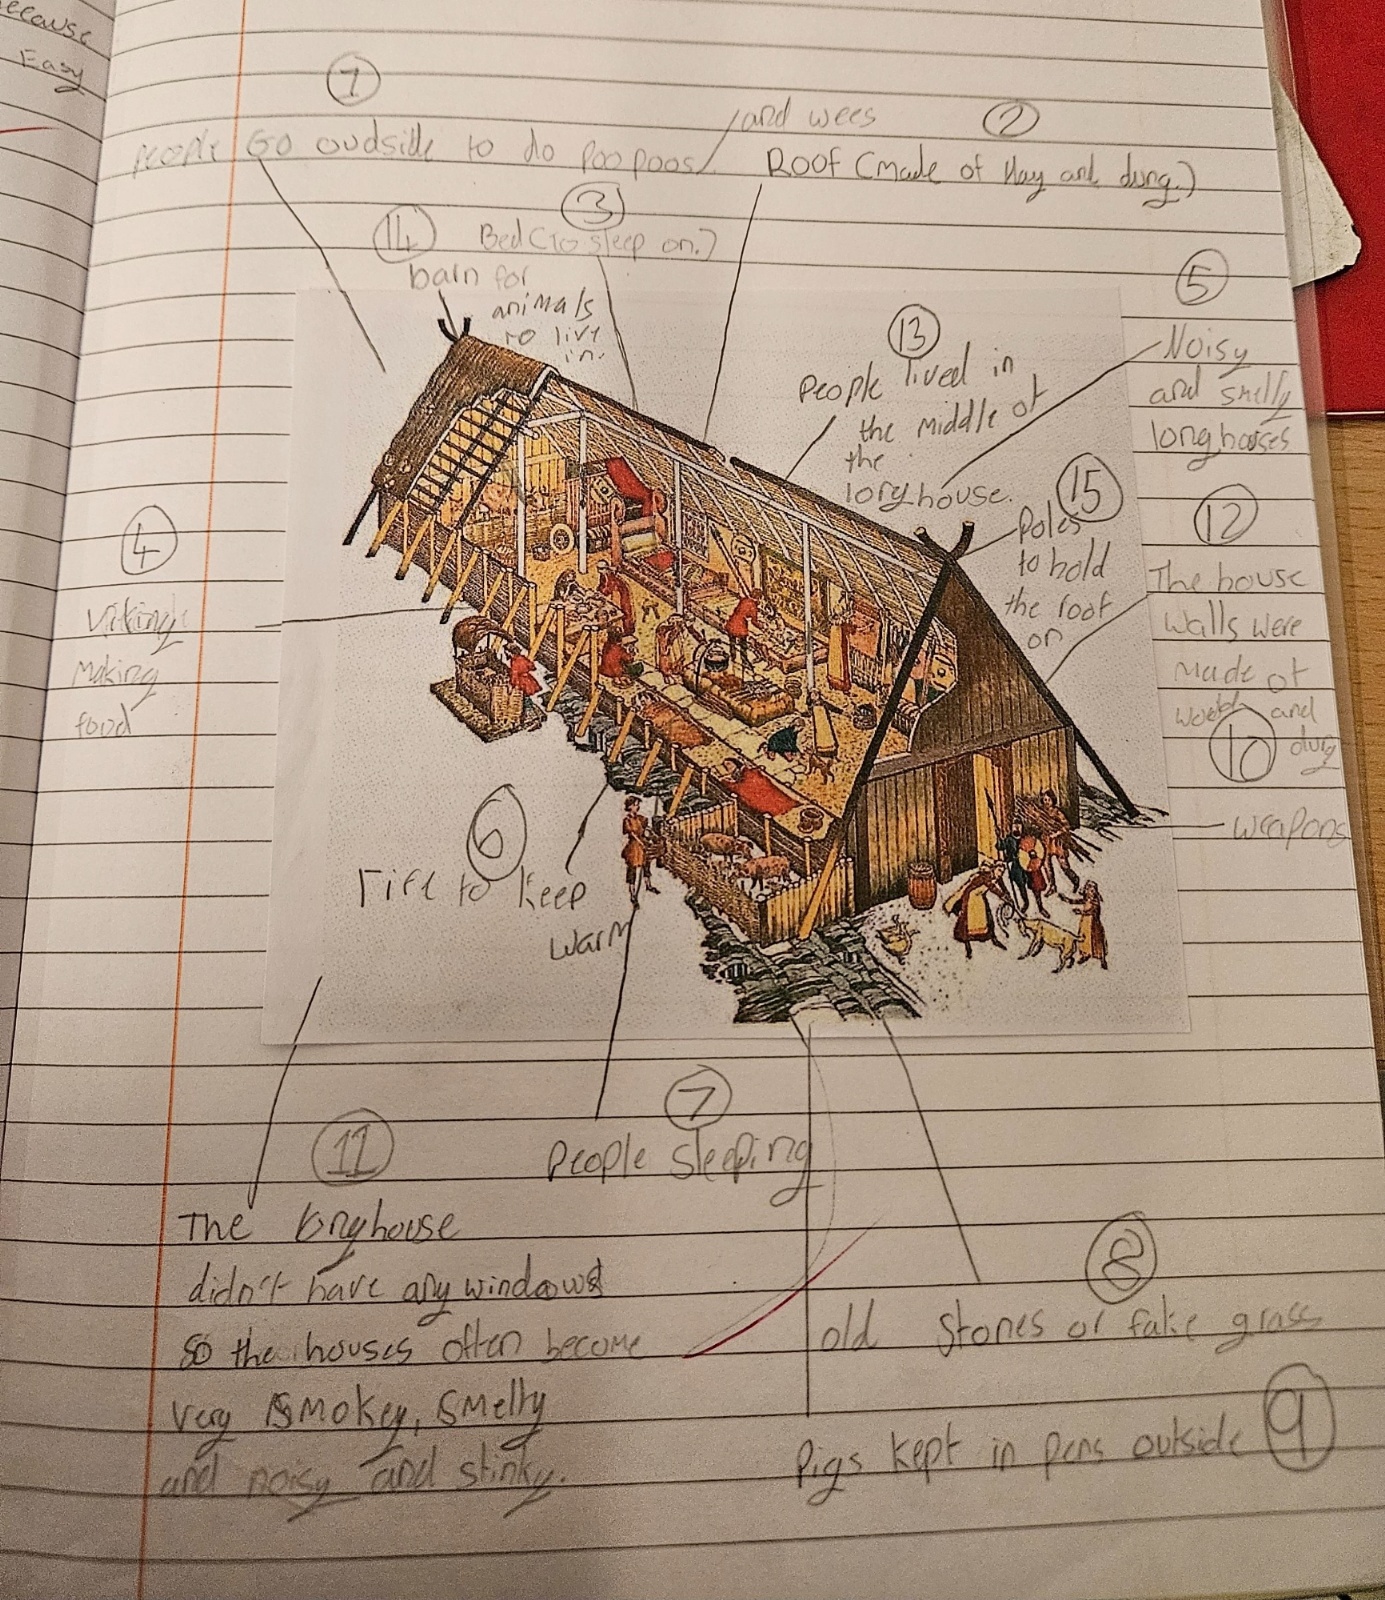 ecause
Easy
1
people Go oudside to do Poo poos
/and wees
2
Roof (made of Hay and dung.)
3
Bed (to sleep on.)
14
barn for
animals
to live
in.
13
People lived in
the middle of
the
longhouse.
5
Noisy
and smelly
longhouses
15
Poles
to hold
the roof
on
12
The house
walls were
made of
and
dung
10
weapons
4
Vikings
Making
food
6
Fire to keep
warm
7
People sleeping
11
The longhouse
didn't have any windows
so the houses often become
very smokey, smelly
and noisy and stinky.
8
old stones or fake grass
9
Pigs kept in pens outside